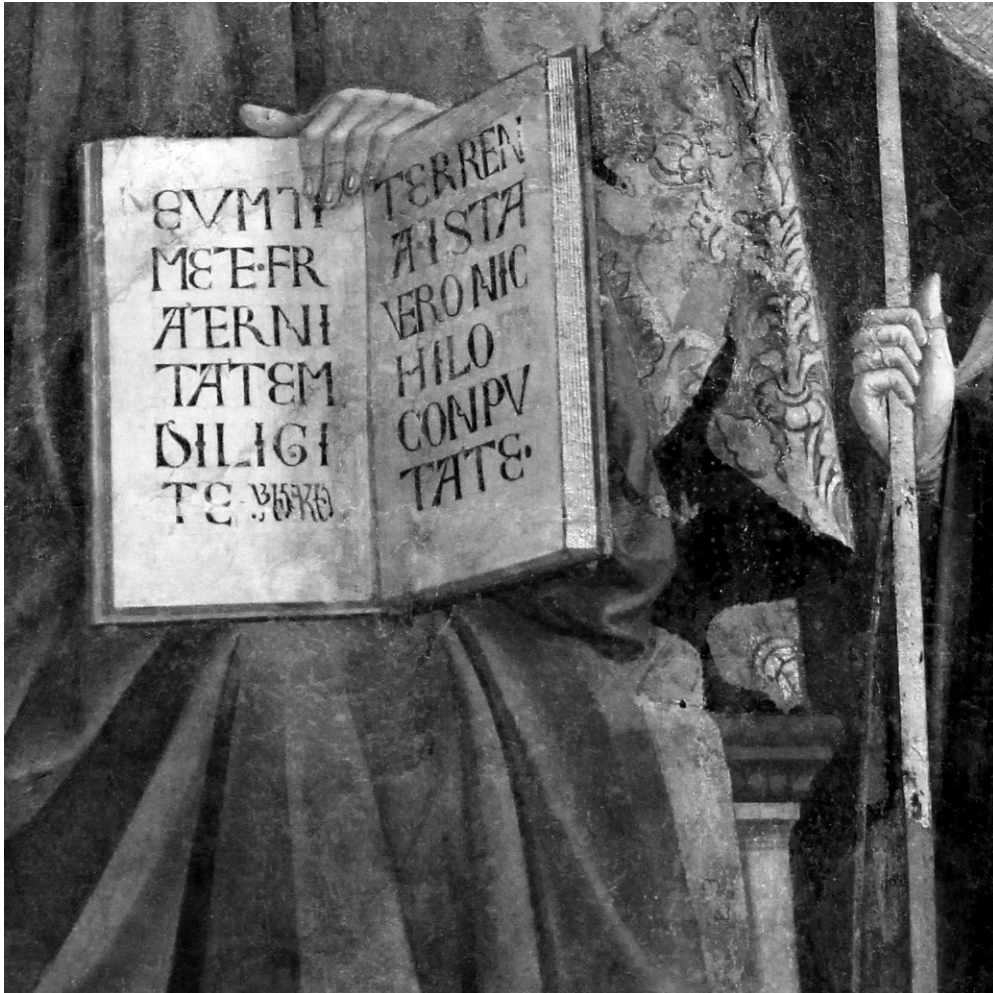 EVMTI
METE·FR
ATERNI
TATEM
DILIGI
TE
TERREN
A·ISTA
VERO NIC
HILO
CONPV
TATE·